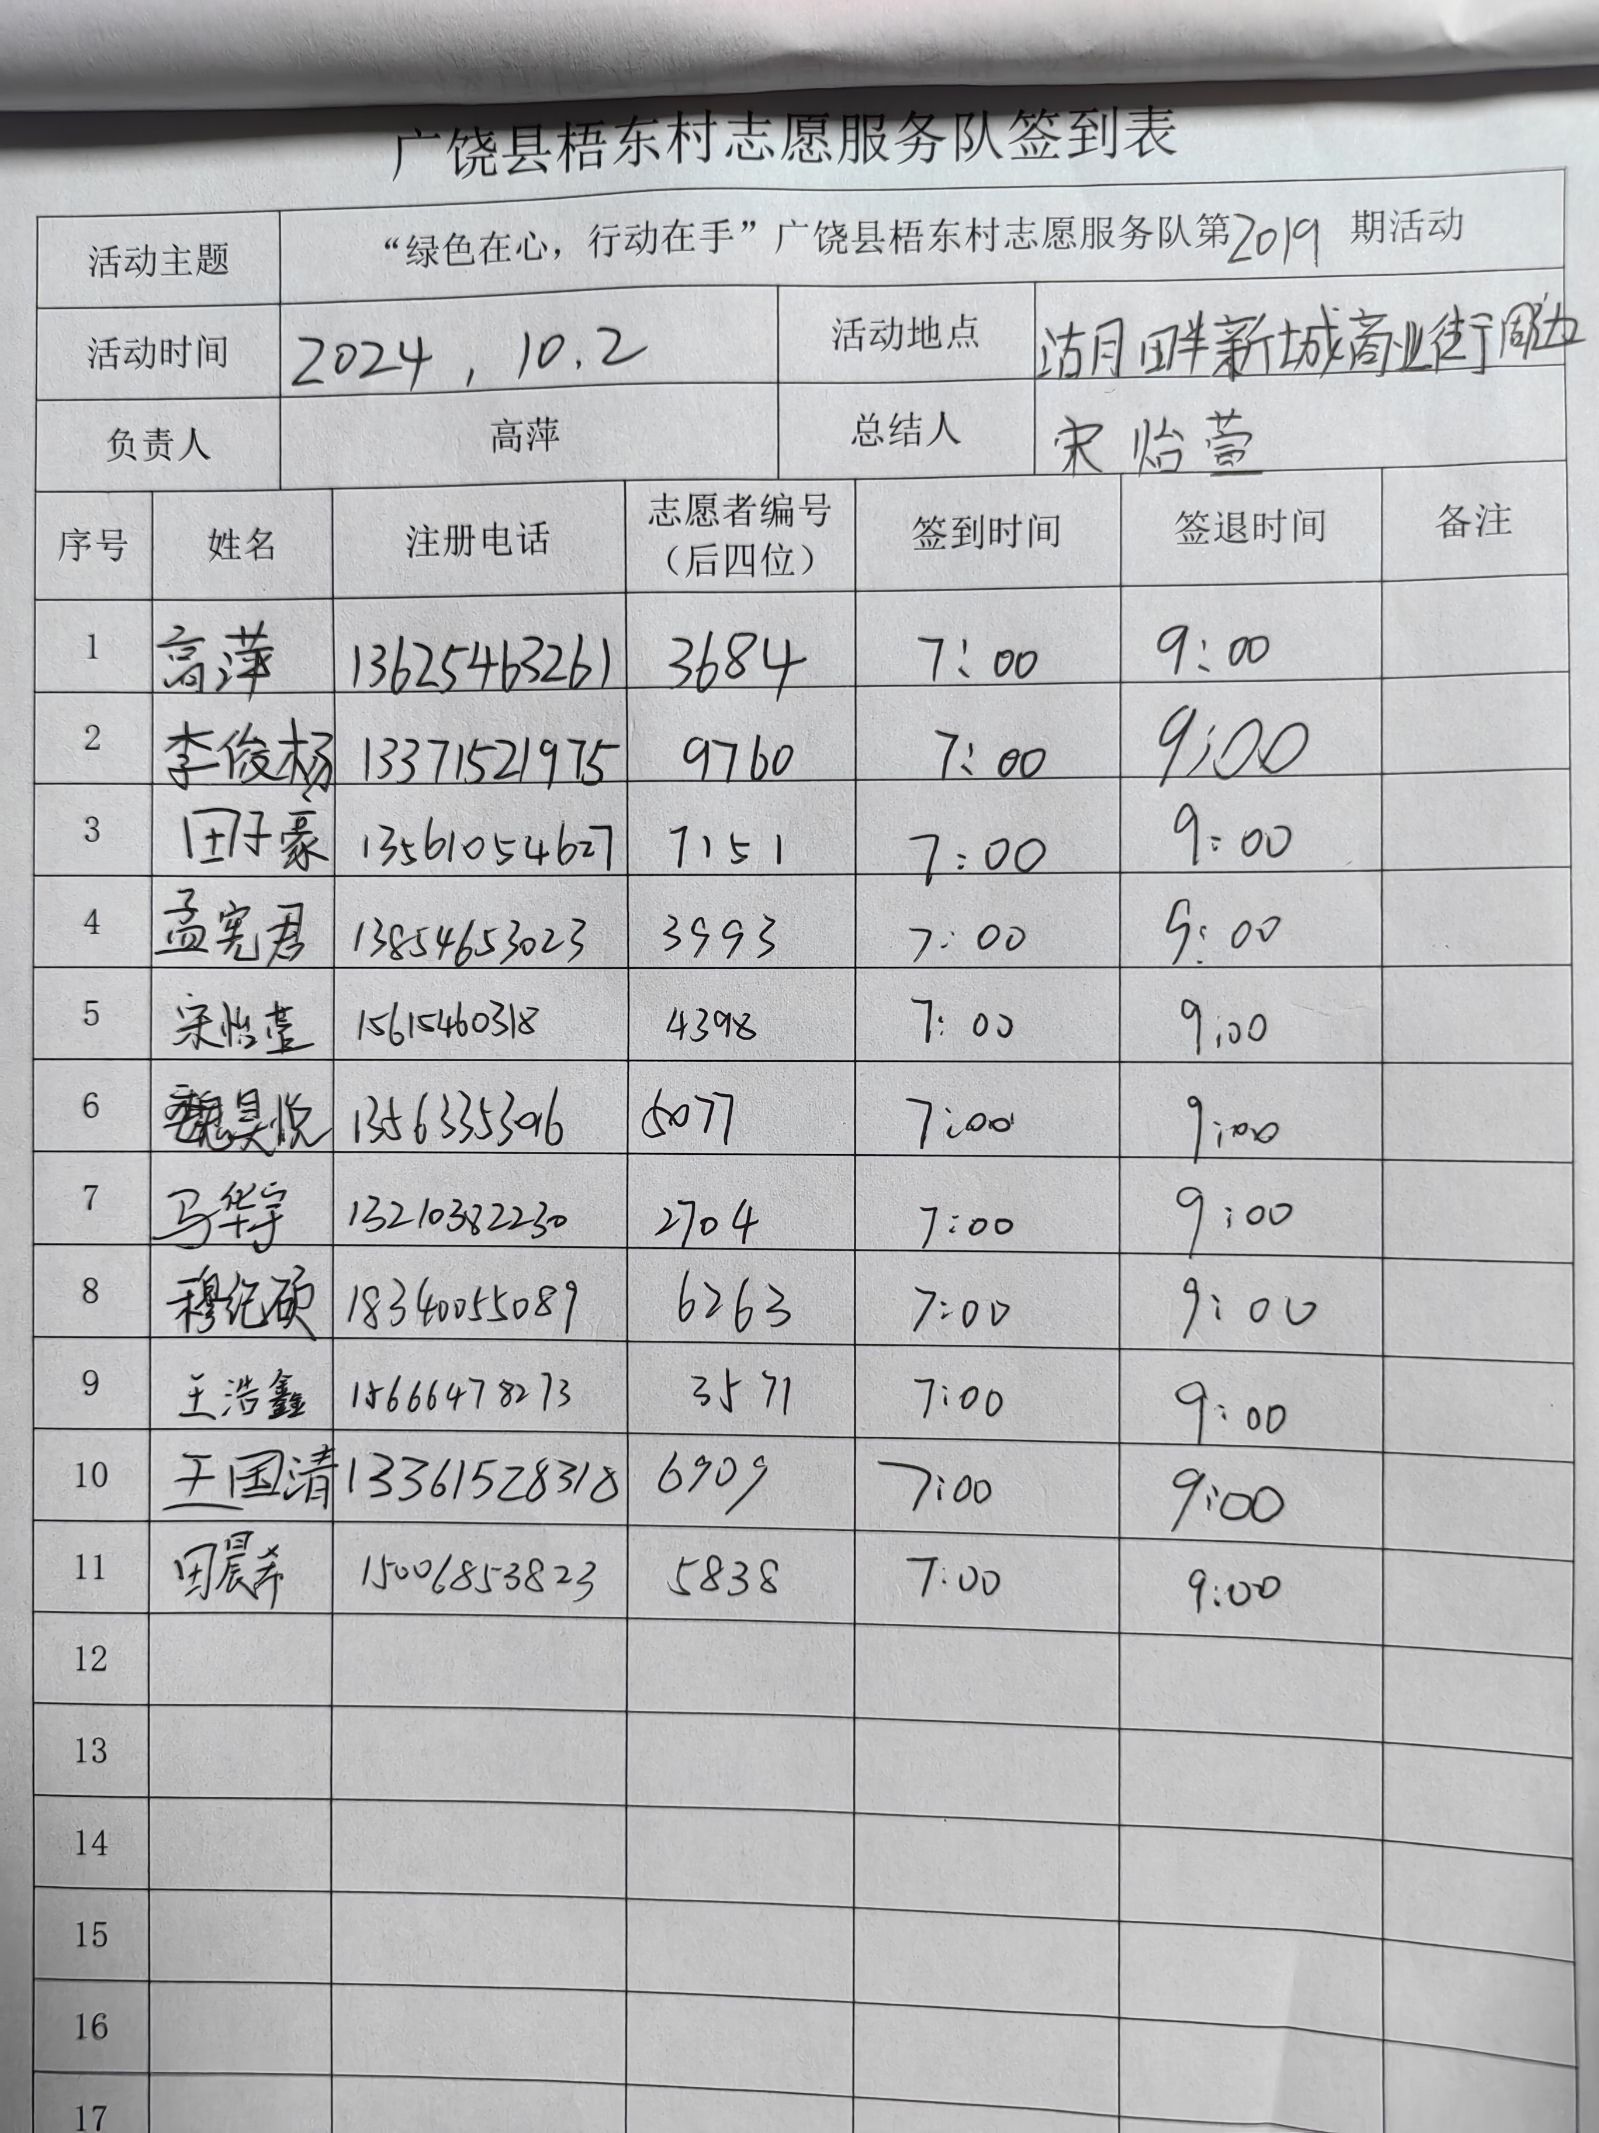 广饶县梧东村志愿服务队签到表
活动主题 “绿色在心，行动在手”广饶县梧东村志愿服务队第2019 期活动
活动时间 2024，10.2 活动地点 沽月畔新城商业街周边
负责人 高萍 总结人 宋怡萱
序号 姓名 注册电话 志愿者编号（后四位） 签到时间 签退时间 备注
1 高萍 13625463261 3684 7:00 9:00
2 李俊杨 13371521975 9760 7:00 9:00
3 田子豪 13561054627 7151 7:00 9:00
4 孟宪君 13854653023 3993 7:00 9:00
5 宋怡萱 15615460318 4398 7:00 9:00
6 魏昊悦 5077 7:00 9:00
7 马华宇 13210382230 2704 7:00 9:00
8 穆纪硕 18340055089 6263 7:00 9:00
9 王浩鑫 15666478273 3571 7:00 9:00
10 王国清 13361528318 6909 7:00 9:00
11 田晨希 15006853823 5838 7:00 9:00
12
13
14
15
16
17